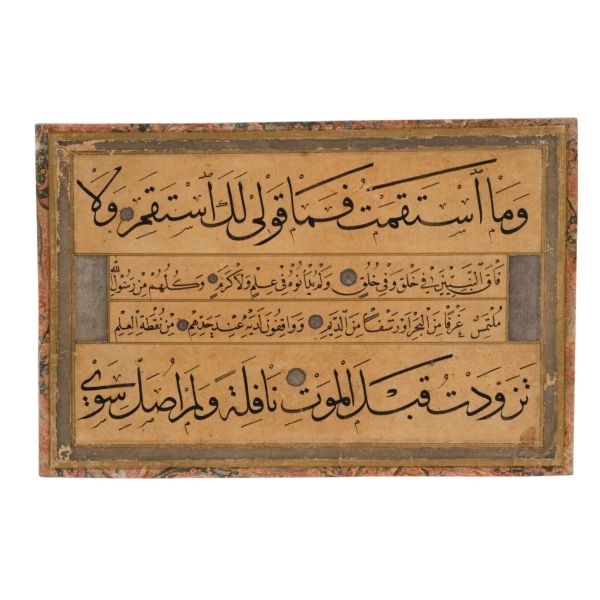 وَمَا اسْتَقَمْتُ فَمَا قَوْلِي لَكَ اسْتَقِمِ وَلَا
فَاقَ النَّبِيِّينَ فِي خَلْقٍ وَفِي خُلُقٍ وَلَمْ يُدَانُوهُ فِي عِلْمٍ وَلَا كَرَمٍ وَكُلُّهُمْ مِنْ رَسُولِ اللّٰهِ
مُلْتَمِسٌ غَرْفًا مِنَ الْبَحْرِ اَوْ رَشْفًا مِنَ الدِّيَمِ وَوَاقِفُونَ لَدَيْهِ عِنْدَ حَدِّهِمِ مِنْ نُقْطَةِ الْعِلْمِ
تَزَوَّدْتُ قَبْلَ الْمَوْتِ نَافِلَةً وَلَمْ اُصَلِّ سِوَي